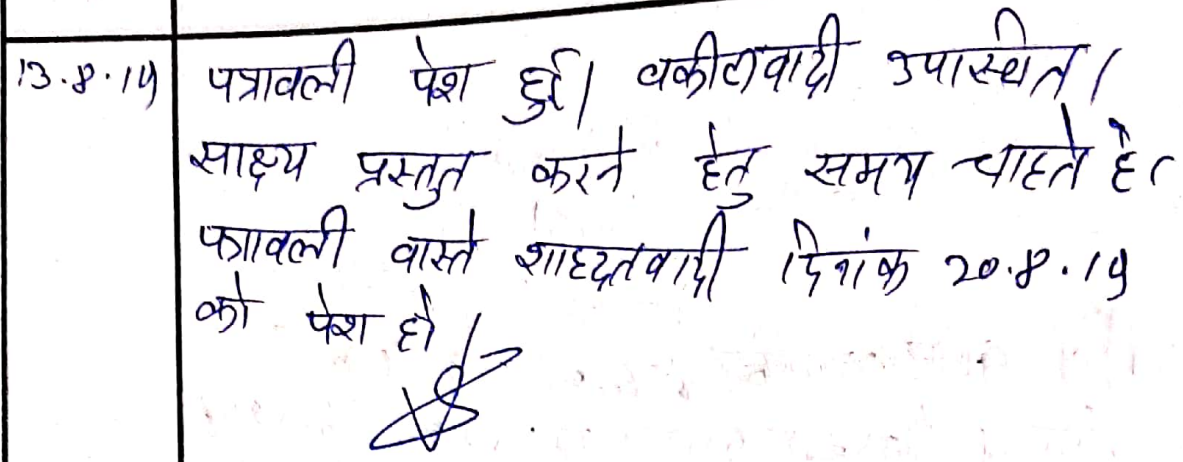 13.8.19 पत्रावली पेश हुई। वकील वादी उपास्थित।
साक्ष्य प्रस्तुत करने हेतु समय चाहते है।
पत्रावली वास्ते शाहदत वादी दिनांक 20.8.19
को पेश हो।